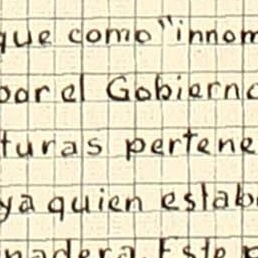 que como "innom
por el Gobierno
turas pertene
ya quien estab
nadera. Este